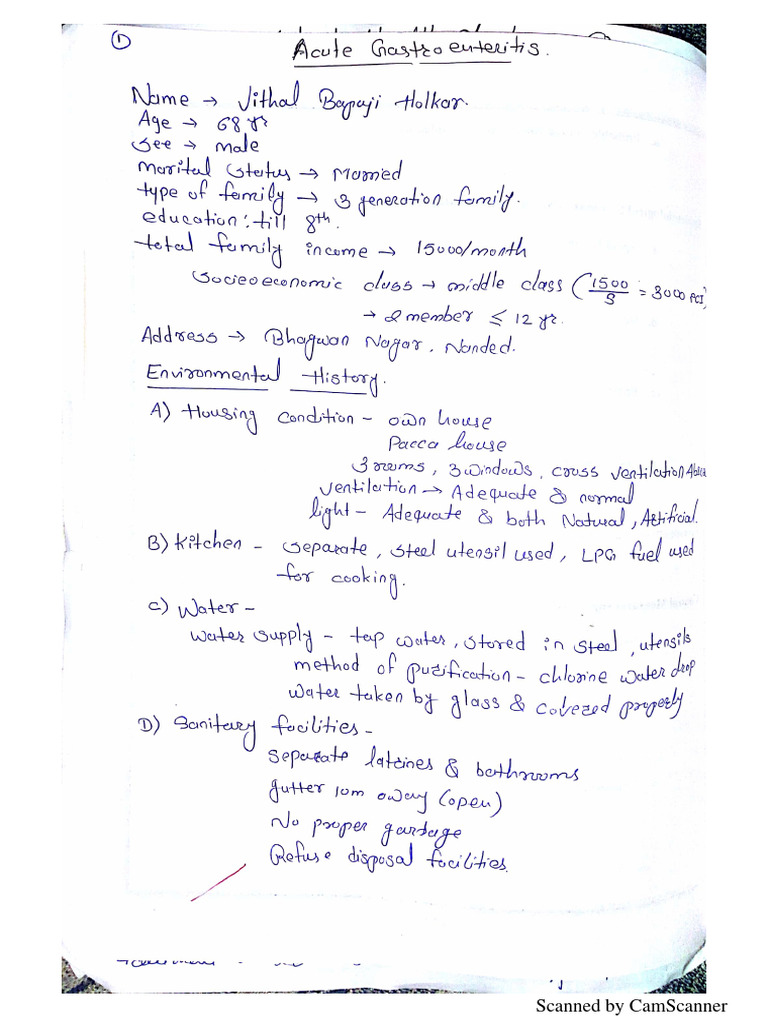 ①
Acute Gastroenteritis.
Name → Vithal Bapuji Holkar.
Age → 68 yr
Sex → male
Marital Status → Married
type of family → 3 generation family.
education : till 8th.
total family income → 15000/month
Socieoeconomic class → middle class (1500/5 = 3000 PCI)
→ 2 member ≤ 12 yr.
Address → Bhagwan Nagar, Nanded.
Environmental History.
A) Housing condition - own house
Pacca house
3 rooms, 3 windows, cross ventilation
ventilation → Adequate & normal
light - Adequate & both Natural, Artificial.
B) Kitchen - Separate, steel utensil used, LPG fuel used
for cooking.
C) Water -
Water supply - tap water, stored in steel, utensils
method of purification - chlorine water drop
water taken by glass & covered properly
D) Sanitary facilities -
separate latrines & bathrooms
gutter 10m away (open)
No proper garbage
Refuse disposal facilities.
Scanned by CamScanner